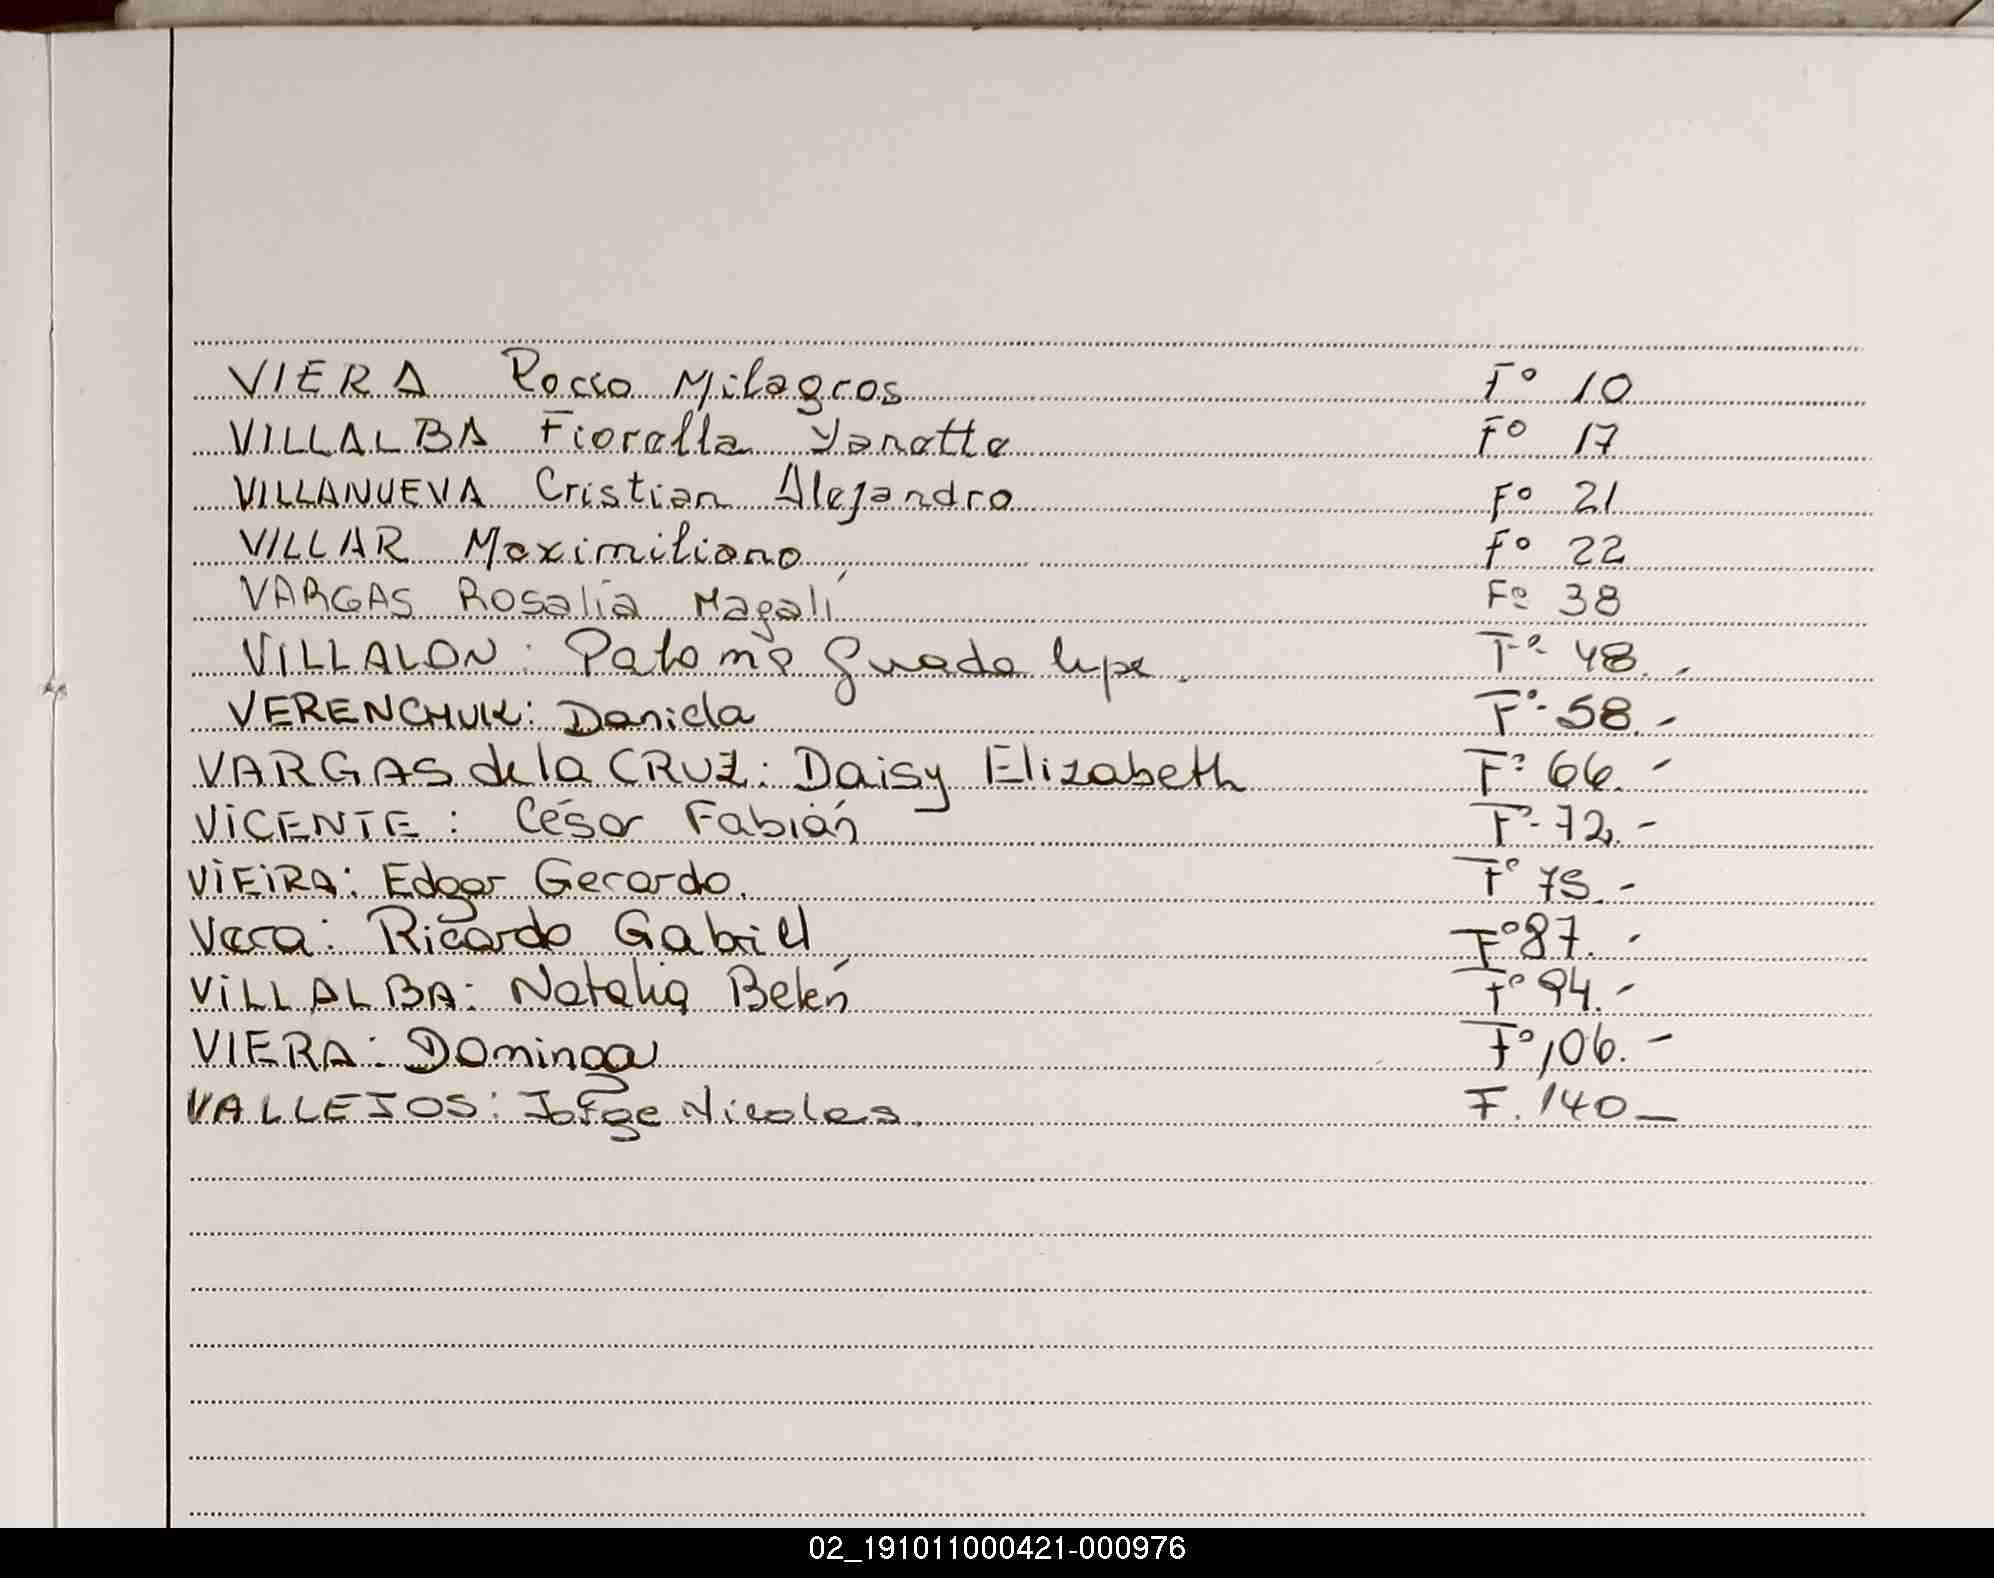 VIERA Rocio Milagros F° 10
VILLALBA Fiorella Yanette F° 17
VILLANUEVA Cristian Alejandro F° 21
VILLAR Maximiliano F° 22
VARGAS Rosalía Magalí F° 38
VILLALON: Paloma Guadalupe. F° 48.-
VERENCHUK: Daniela F° 58.-
VARGAS de la CRUZ: Daisy Elizabeth F° 66.-
VICENTE: César Fabián F° 72.-
VIEIRA: Edgar Gerardo. F° 75.-
Vera: Ricardo Gabriel F° 87.-
VILLALBA: Natalia Belén F° 94.-
VIERA: Dominga F° 106.-
VALLEJOS: Jorge Nicolas. F. 140-
02_191011000421-000976